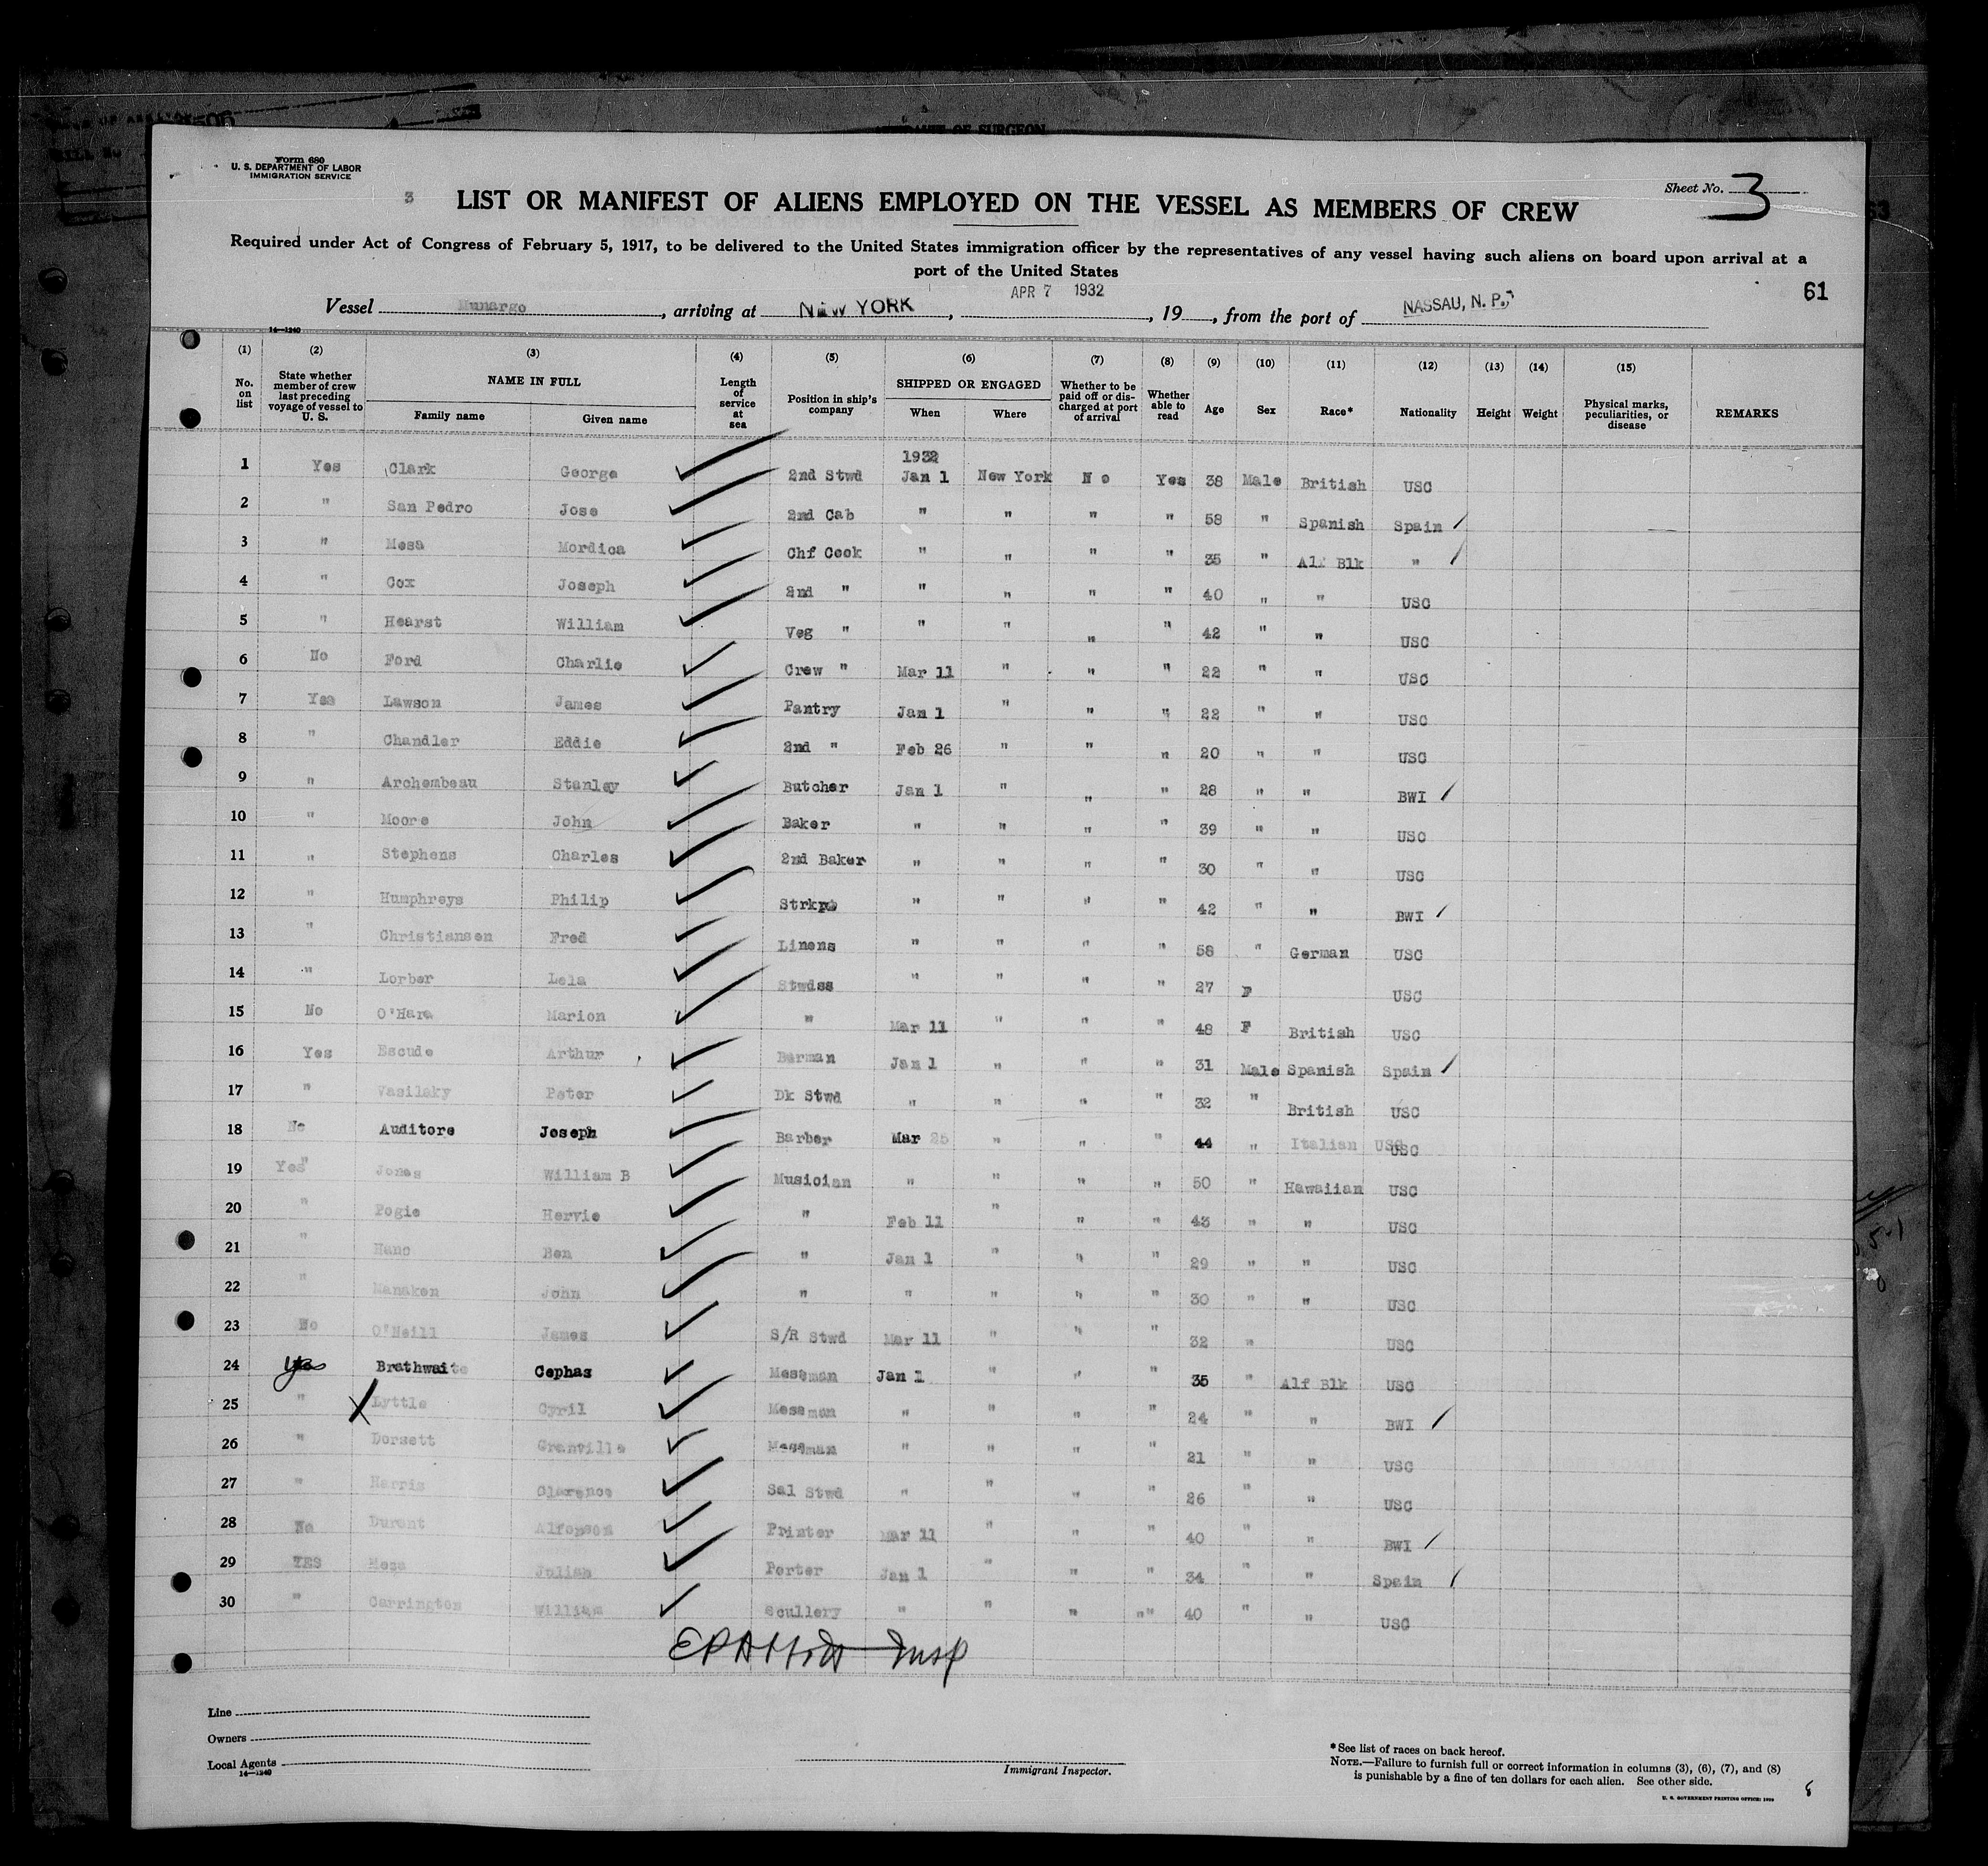 Form 680
U. S. DEPARTMENT OF LABOR
IMMIGRATION SERVICE
Sheet No. 3
3 LIST OR MANIFEST OF ALIENS EMPLOYED ON THE VESSEL AS MEMBERS OF CREW
Required under Act of Congress of February 5, 1917, to be delivered to the United States immigration officer by the representatives of any vessel having such aliens on board upon arrival at a
port of the United States
61
Vessel Munargo, arriving at NEW YORK, APR 7 1932, 19, from the port of NASSAU, N. P.
14—1240
(1) (2) (3) (4) (5) (6) (7) (8) (9) (10) (11) (12) (13) (14) (15)
No. on list State whether member of crew last preceding voyage of vessel to U. S. NAME IN FULL Family name Given name Length of service at sea Position in ship's company SHIPPED OR ENGAGED When Where Whether to be paid off or discharged at port of arrival Whether able to read Age Sex Race* Nationality Height Weight Physical marks, peculiarities, or disease REMARKS
1932
1 Yes Clark George 2nd Stwd Jan 1 New York No Yes 38 Male British USC
2 " San Pedro Jose 2nd Cab " " " " 58 " Spanish Spain
3 " Mesa Mordica Chf Cook " " " " 35 " Alf Blk "
4 " Cox Joseph 2nd " " " " " 40 " " USC
5 " Hearst William Veg " " " " " 42 " " USC
6 No Ford Charlie Crew " Mar 11 " " " 22 " " USC
7 Yes Lawson James Pantry Jan 1 " " " 22 " " USC
8 " Chandler Eddie 2nd " Feb 26 " " " 20 " " USC
9 " Archembeau Stanley Butcher Jan 1 " " " 28 " " BWI
10 " Moore John Baker " " " " 39 " " USC
11 " Stephens Charles 2nd Baker " " " " 30 " " USC
12 " Humphreys Philip Strkp " " " " 42 " " BWI
13 " Christiansen Fred Linens " " " " 58 " German USC
14 " Lorber Lela Stwdss " " " " 27 F USC
15 No O'Hara Marion " Mar 11 " " " 48 F British USC
16 Yes Escude Arthur Barman Jan 1 " " " 31 Male Spanish Spain
17 " Vasilsky Peter Dk Stwd " " " " 32 " British USC
18 No Auditore Joseph Barber Mar 25 " " " 44 " Italian USC
19 Yes" Jones William B Musician " " " " 50 " Hawaiian USC
20 " Pogie Hervie " Feb 11 " " " 43 " " USC
21 " Hano Ben " Jan 1 " " " 29 " " USC
22 " Manaken John " " " " " 30 " " USC
23 No O'Neill James S/R Stwd Mar 11 " " " 32 " USC
24 Yes Brathwaite Cephas Messman Jan 1 " " " 35 " Alf Blk USC
25 " X Lyttle Cyril Messman " " " " 24 " " BWI
26 " Dorsett Granville Messman " " " " 21 " " USC
27 " Harris Clarence Sal Stwd " " " " 26 " " USC
28 No Durent Alfonson Printer Mar 11 " " " 40 " " BWI
29 YES Mesa Julian Porter Jan 1 " " " 34 " " Spain
30 " Carrington William Scullery " " " "" 40 " " USC
Insp
Line
Owners
Local Agents
14—1240
Immigrant Inspector.
*See list of races on back hereof.
NOTE.—Failure to furnish full or correct information in columns (3), (6), (7), and (8)
is punishable by a fine of ten dollars for each alien. See other side.
U. S. GOVERNMENT PRINTING OFFICE: 1929